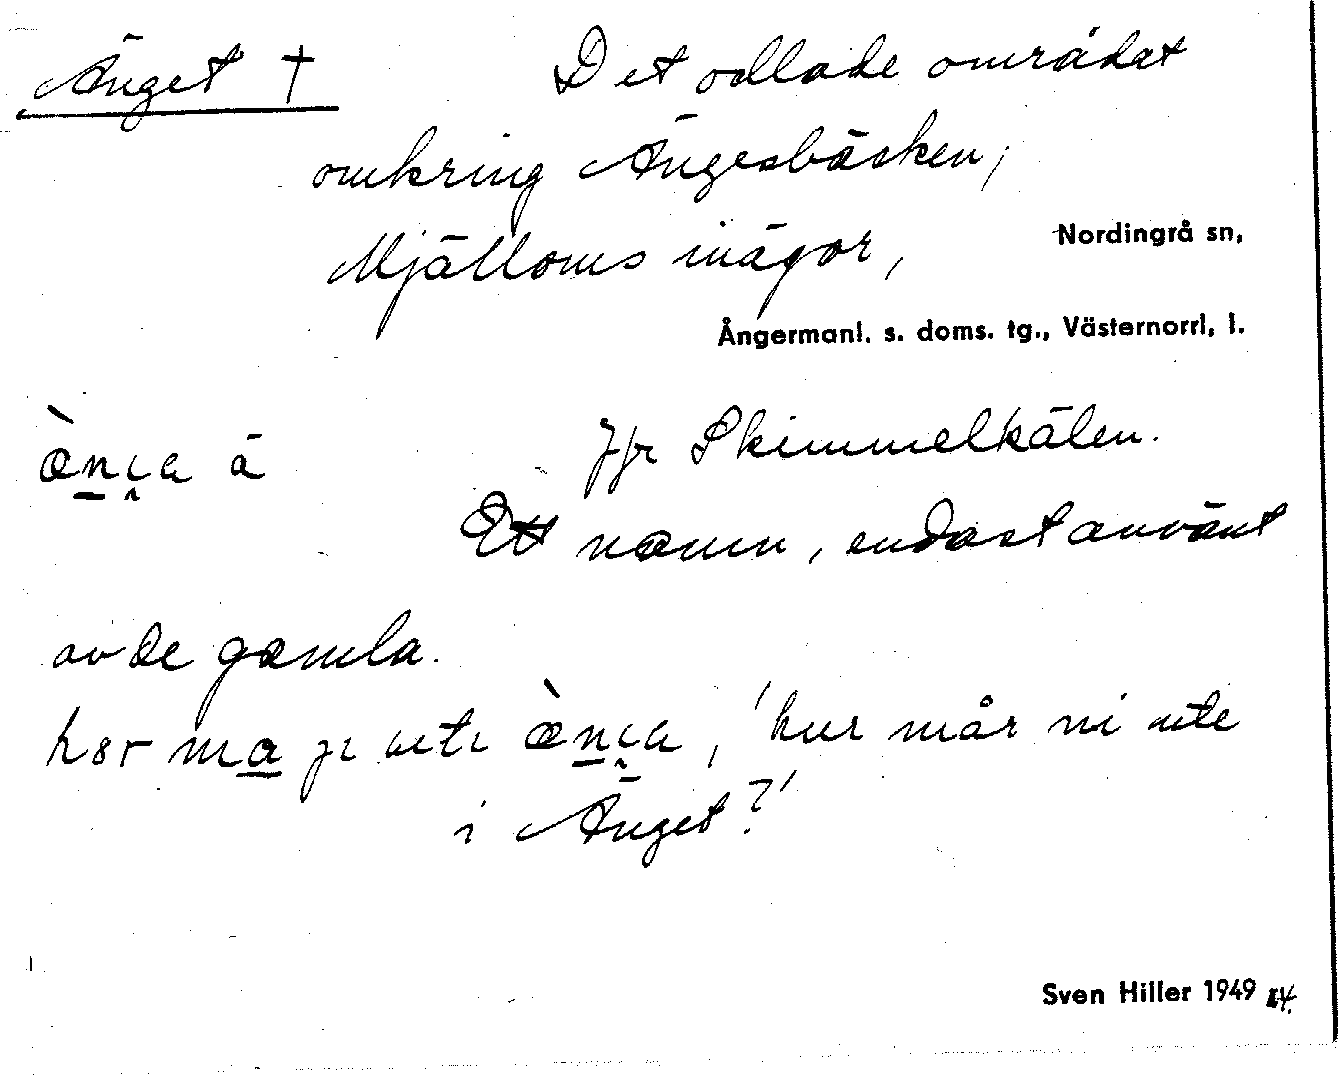 Änget †
Det odlade området
omkring Ängesbäcken,
Mjälloms inägor,
Nordingrå sn,
Ångermanl. s. doms. tg., Västernorrl. l.
Jfr Skimmelkälen.
Ett namn, endast använt
av de gamla.
'hur mår ni ute
i Änget?'
Sven Hiller 1949